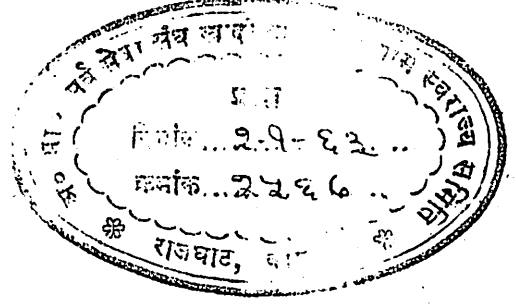 अ० भा० सर्व सेवा संघ स्वराज्य समिति
प्राप्त
दिनांक...२-१-६३...
क्रमांक...२५६७...
राजघाट,